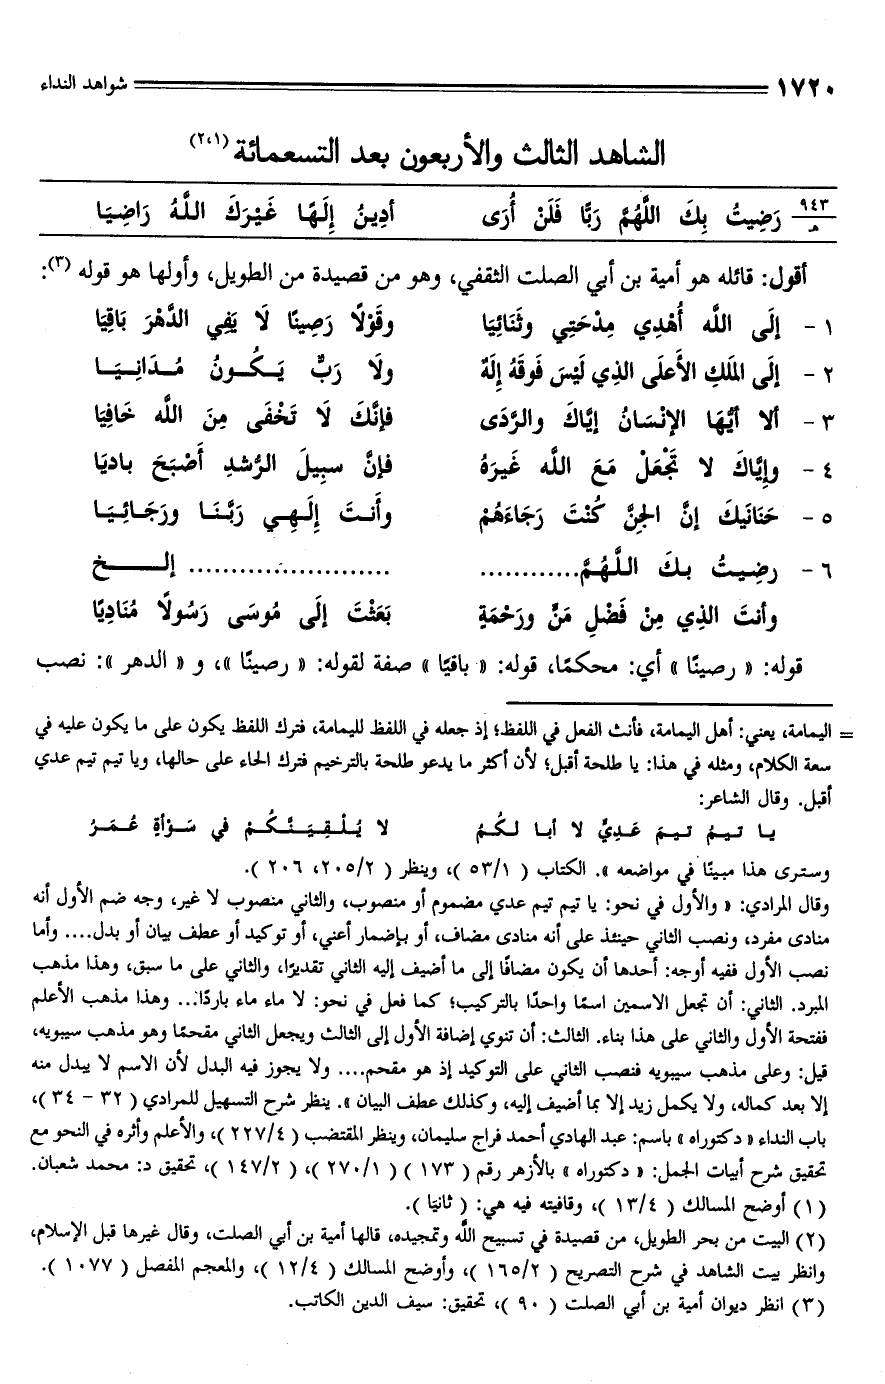 ١٧٢٠ شواهد النداء
الشاهد الثالث والأربعون بعد التسعمائة (١،٢)
٩٤٣ هـ رَضِيتُ بِكَ اللَّهُمَّ رَبًّا فَلَنْ أُرَى أدِينُ إِلَهًا غَيْرَكَ اللَّهُ رَاضِيَا
أقول: قائله هو أمية بن أبي الصلت الثقفي، وهو من قصيدة من الطويل، وأولها هو قوله (٣):
١ - إلَى اللَّه أُهْدِي مِدْحَتِي وثَنَائِيَا وقَوْلًا رَصِينًا لَا يَفِي الدَّهْرَ بَاقِيَا
٢ - إلَى المَلَكِ الأَعلَى الذي لَيْسَ فَوقَهُ إِلَهٌ ولَا رَبٌّ يَـكُـونُ مُـدَانِـيَـا
٣ - ألا أيُّهَا الإنْسَانُ إيَّاكَ والرَّدَى فإنَّكَ لَا تَخْفَى مِنَ اللَّه خَافِيَا
٤ - وإيَّاكَ لا تَجْعَلْ مَعَ اللَّه غَيرَهُ فإنَّ سبِيلَ الرُّشدِ أصْبَحَ بادِيَا
٥ - حَنَانَيكَ إنَّ الجنَّ كُنْتَ رَجَاءَهُمْ وأَنـتَ إلَـهِـي رَبَّـنَـا ورَجَـائِـيَـا
٦ - رضِـيـتُ بـكَ الـلَّـهُـمَّ............ ........................ إلـــــخ
وأنتَ الذِي مِنْ فَضْلِ مَنٍّ ورَحْمَةٍ بَعَثْتَ إلَى مُوسَى رَسُولًا مُنَادِيًا
قوله: « رصينًا » أي: محكمًا، قوله: « باقيًا » صفة لقوله: « رصينًا »، و « الدهر »: نصب
= اليمامة، يعني: أهل اليمامة، فأنث الفعل في اللفظ؛ إذ جعله في اللفظ لليمامة، فترك اللفظ يكون على ما يكون عليه في
سعة الكلام، ومثله في هذا: يا طلحة أقبل؛ لأن أكثر ما يدعو طلحة بالترخيم فترك الحاء على حالها، ويا تيم تيم عدي
أقبل. وقال الشاعر:
يـا تـيـمُ تـيـمَ عَـدِيٍّ لا أبـا لـكُـمُ لا يُـلْـقِـيَـنَّـكُـمْ في سَـوْأةٍ عُـمَـرُ
وسترى هذا مبينًا في مواضعه ». الكتاب ( ٥٣/١ )، وينظر ( ٢٠٥/٢، ٢٠٦ ).
وقال المرادي: « والأول في نحو: يا تيم تيم عدي مضموم أو منصوب، والثاني منصوب لا غير، وجه ضم الأول أنه
منادى مفرد، ونصب الثاني حينئذ على أنه منادى مضاف، أو بإضمار أعني، أو توكيد أو عطف بيان أو بدل.... وأما
نصب الأول ففيه أوجه: أحدها أن يكون مضافًا إلى ما أضيف إليه الثاني تقديرًا، والثاني على ما سبق، وهذا مذهب
المبرد. الثاني: أن تجعل الاسمين اسمًا واحدًا بالتركيب؛ كما فعل في نحو: لا ماء ماء باردًا... وهذا مذهب الأعلم
ففتحة الأول والثاني على هذا بناء. الثالث: أن تنوي إضافة الأول إلى الثالث ويجعل الثاني مقحمًا وهو مذهب سيبويه،
قيل: وعلى مذهب سيبويه فنصب الثاني على التوكيد إذ هو مقحم.... ولا يجوز فيه البدل لأن الاسم لا يبدل منه
إلا بعد كماله، ولا يكمل زيد إلا بما أضيف إليه، وكذلك عطف البيان ». ينظر شرح التسهيل للمرادي ( ٣٢ - ٣٤ )،
باب النداء « دكتوراه » باسم: عبد الهادي أحمد فراج سليمان، وينظر المقتضب ( ٢٢٧/٤ )، والأعلم وأثره في النحو مع
تحقيق شرح أبيات الجمل: « دكتوراه » بالأزهر رقم ( ١٧٣ ) ( ٢٧٠/١ )، ( ١٤٧/٢ )، تحقيق د: محمد شعبان.
(١) أوضح المسالك ( ١٣/٤ )، وقافيته فيه هي: ( ثانيَا ).
(٢) البيت من بحر الطويل، من قصيدة في تسبيح اللَّه وتمجيده، قالها أمية بن أبي الصلت، وقال غيرها قبل الإسلام،
وانظر بيت الشاهد في شرح التصريح ( ١٦٥/٢ )، وأوضح المسالك ( ١٢/٤ )، والمعجم المفصل ( ١٠٧٧ ).
(٣) انظر ديوان أمية بن أبي الصلت ( ٩٠ )، تحقيق: سيف الدين الكاتب.